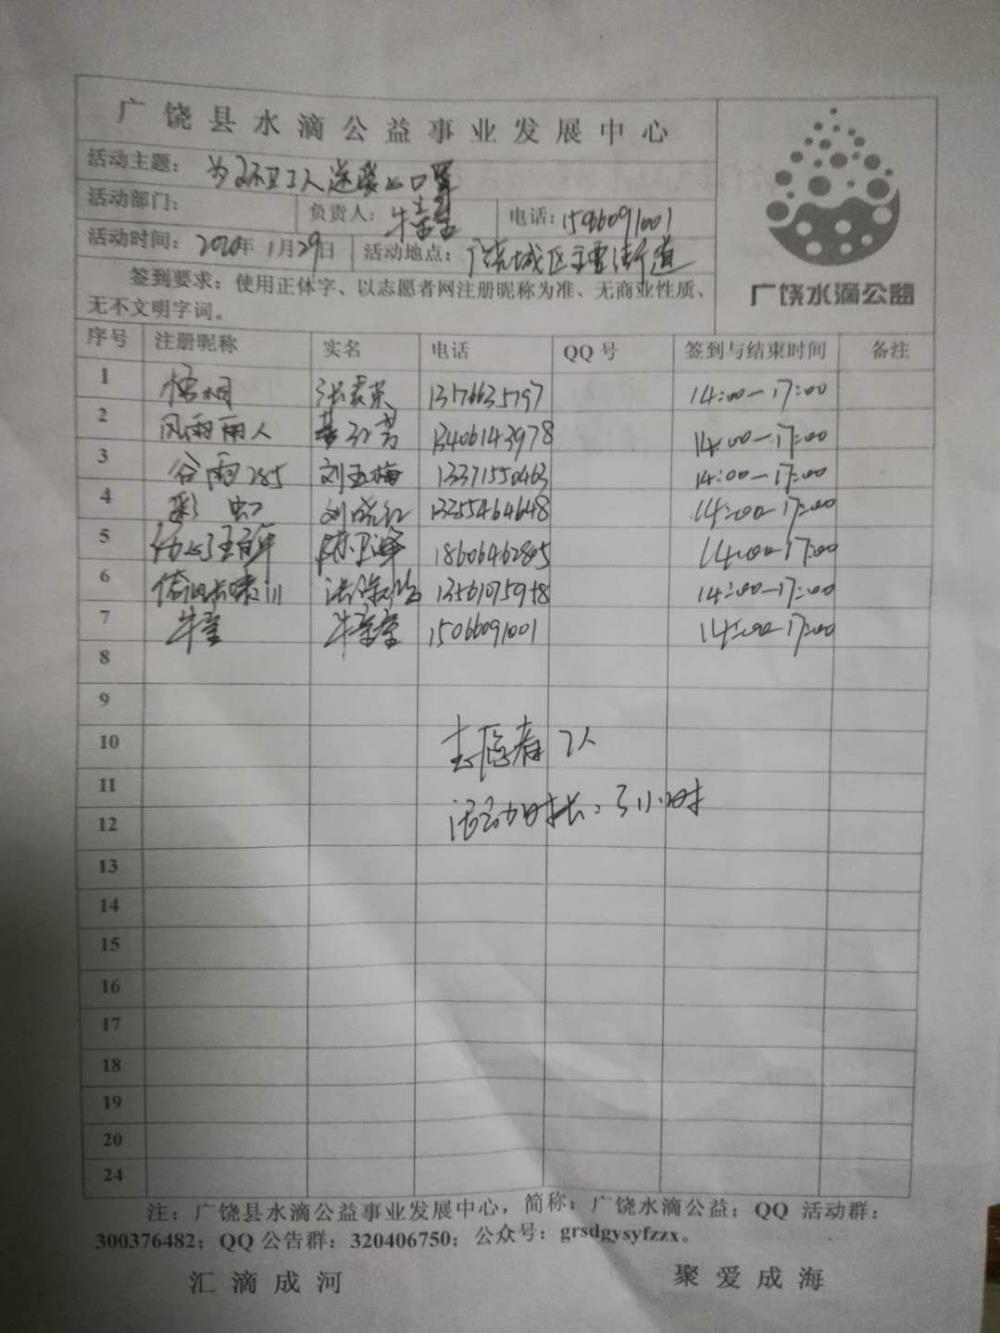 广饶县水滴公益事业发展中心
活动主题：为环卫工人送爱心口罩
活动部门： 负责人： 电话：
活动时间：2020年1月29日 活动地点：广饶城区主要街道
签到要求：使用正体字、以志愿者网注册昵称为准、无商业性质、
无不文明字词。
广饶水滴公益
序号 注册昵称 实名 电话 QQ号 签到与结束时间 备注
1 梧桐 14:00-17:00
2 风雨雨人 13406143978 14:00-17:00
3 谷雨285 刘玉梅 13371550463 14:00-17:00
4 彩虹 刘晓红 13255464648 14:00-17:00
5 18606462805 14:00-17:00
6 14:00-17:00
7 15066091001 14:00-17:00
8
9
10
志愿者7人
11
活动时长：3小时
12
13
14
15
16
17
18
19
20
24
注：广饶县水滴公益事业发展中心，简称：广饶水滴公益；QQ 活动群：
300376482；QQ公告群：320406750；公众号：grsdgysyfzzx。
汇滴成河 聚爱成海